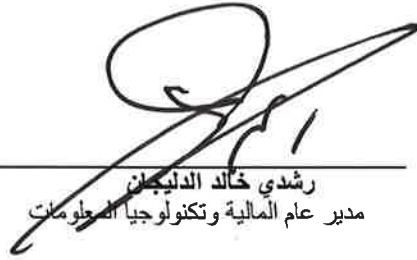 رشدي خالد الدليجان
مدير عام المالية وتكنولوجيا المعلومات